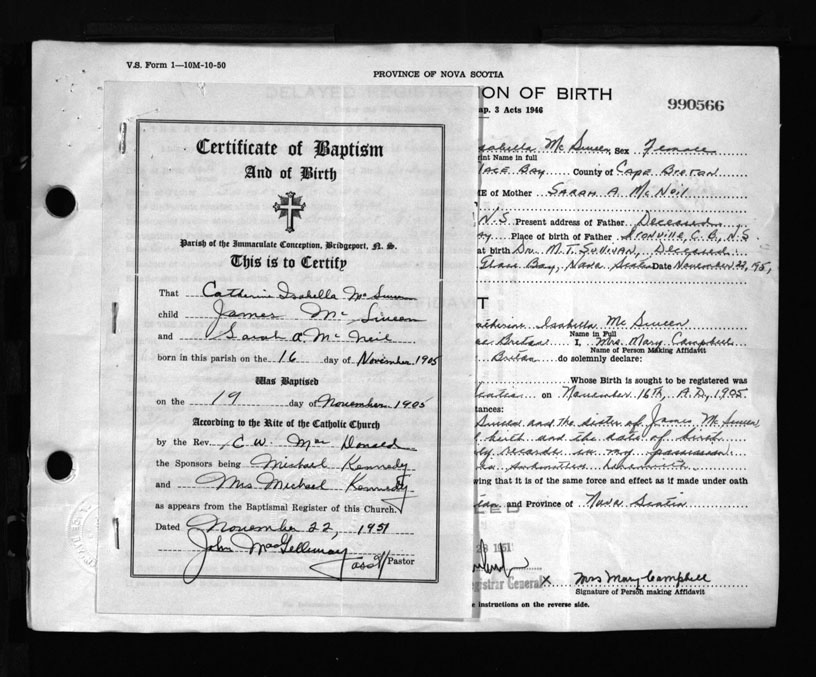 V.S. Form 1—10M-10-50
PROVINCE OF NOVA SCOTIA
DELAYED REGISTRATION OF BIRTH
ap. 3 Acts 1946
990566
Certificate of Baptism
And of Birth
Parish of the Immaculate Conception, Bridgeport, N. S.
This is to Certify
That Catherine Isabella McSween
child James McSween
and Sarah A. McNeil
born in this parish on the 16 day of November 1905
Was Baptised
on the 19 day of November 1905
According to the Rite of the Catholic Church
by the Rev. C. W. MacDonald
the Sponsors being Michael Kennedy
and Mrs Michael Kennedy
as appears from the Baptismal Register of this Church.
Dated November 22, 1951
John
Pastor
sabella McSween, Sex Female
rint Name in full
lace Bay County of Cape Breton
ME of Mother Sarah A. McNeil
N.S. Present address of Father Deceased
Place of birth of Father Ironville, C.B., N.S.
at birth Dr. M.T. Sullivan, Deceased
Glace Bay, Nova Scotia Date November 22, '51
T
atherine Isabella McSween
Name in Full
Breton I, Mrs. Mary Campbell
Name of Person Making Affidavit
Breton do solemnly declare:
Whose Birth is sought to be registered was
on November 16th, A.D. 1905.
tances:
Sween and the sister of James McSween
birth and the date of birth
ly records in my possession
herewith
ving that it is of the same force and effect as if made under oath
and Province of Nova Scotia
28 1951
gistrar General
x Mrs Mary Campbell
Signature of Person making Affidavit
instructions on the reverse side.